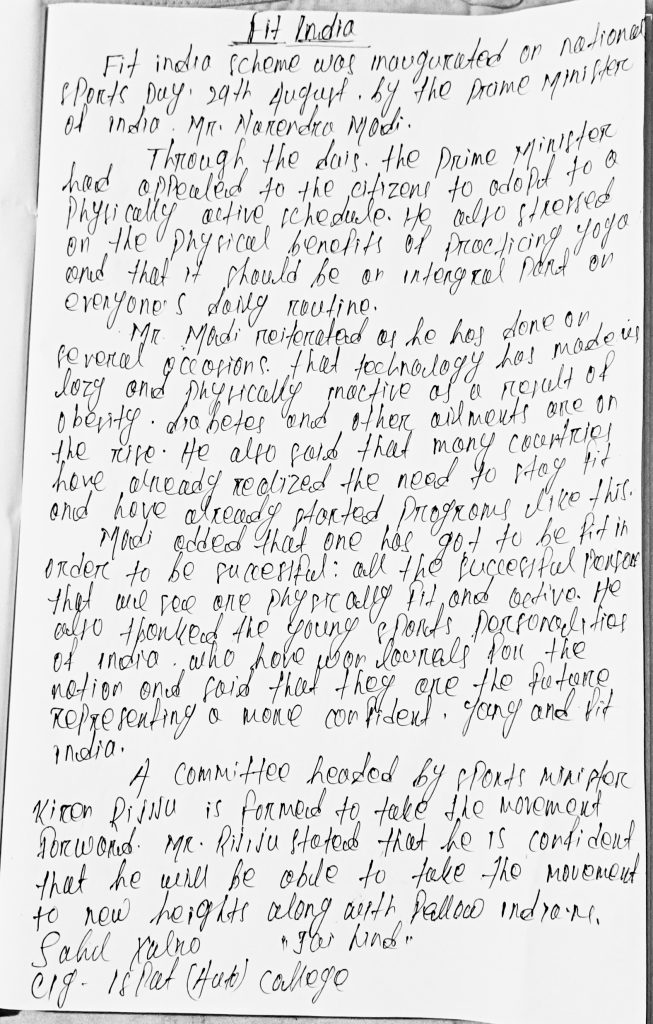 Fit India
Fit india scheme was inaugurated on national
sports Day. 29th August. by the prime Minister
of india. Mr. Narendra Modi.
Through the dais. the prime Minister
had appealed to the citizens to adopt to a
physically active schedule. He also stressed
on the physical benefits of practicing yoga
and that it should be an intengral Part on
everyone's daily routine.
Mr. Modi reiterated as he has done on
several occasions. that technology has made us
lazy and physically inactive as a result of
obesity. diabetes and other ailments are on
the rise. He also said that many countries
have already realized the need to stay fit
and have already started programs like this.
Modi added that one has got to be fit in
order to be sucessful: all the successful person
that we see are physically fit and active. He
also thanked the young sports personalities
of india. who have won laurels for the
nation and said that they are the future
representing a more confident. yang and fit
india.
A committee headed by sports minister
Kiren Rijiju is formed to take the movement
forward. Mr. Rijiju stated that he is confident
that he will be able to take the movement
to new heights along with fellow indians.
"Jai hind"
(Auto) college